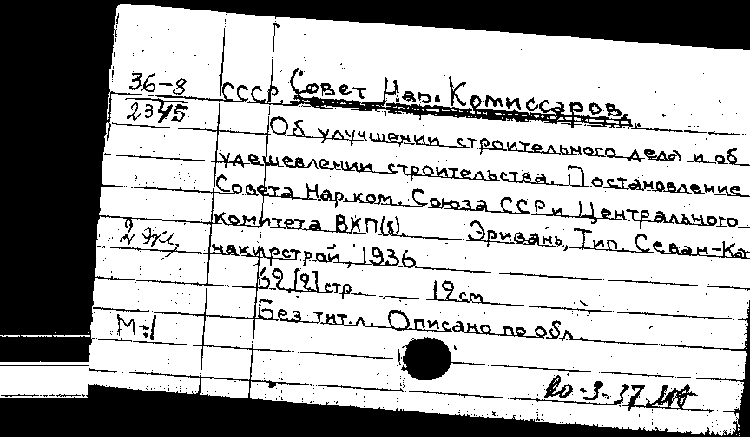 36-8
2345
СССР. Совет Нар. Комиссаров.
Об улучшении строительного дела и об
удешевлении строительства. Постановление
Совета Нар. ком. Союза ССР и Центрального
комитета ВКП(б). Эривань, Тип. Севан-Ка
накирстрой, 1936
2 экз.
32 [2] стр. 19 см
Без тит. л. Описано по обл.
М-1
20-3-37